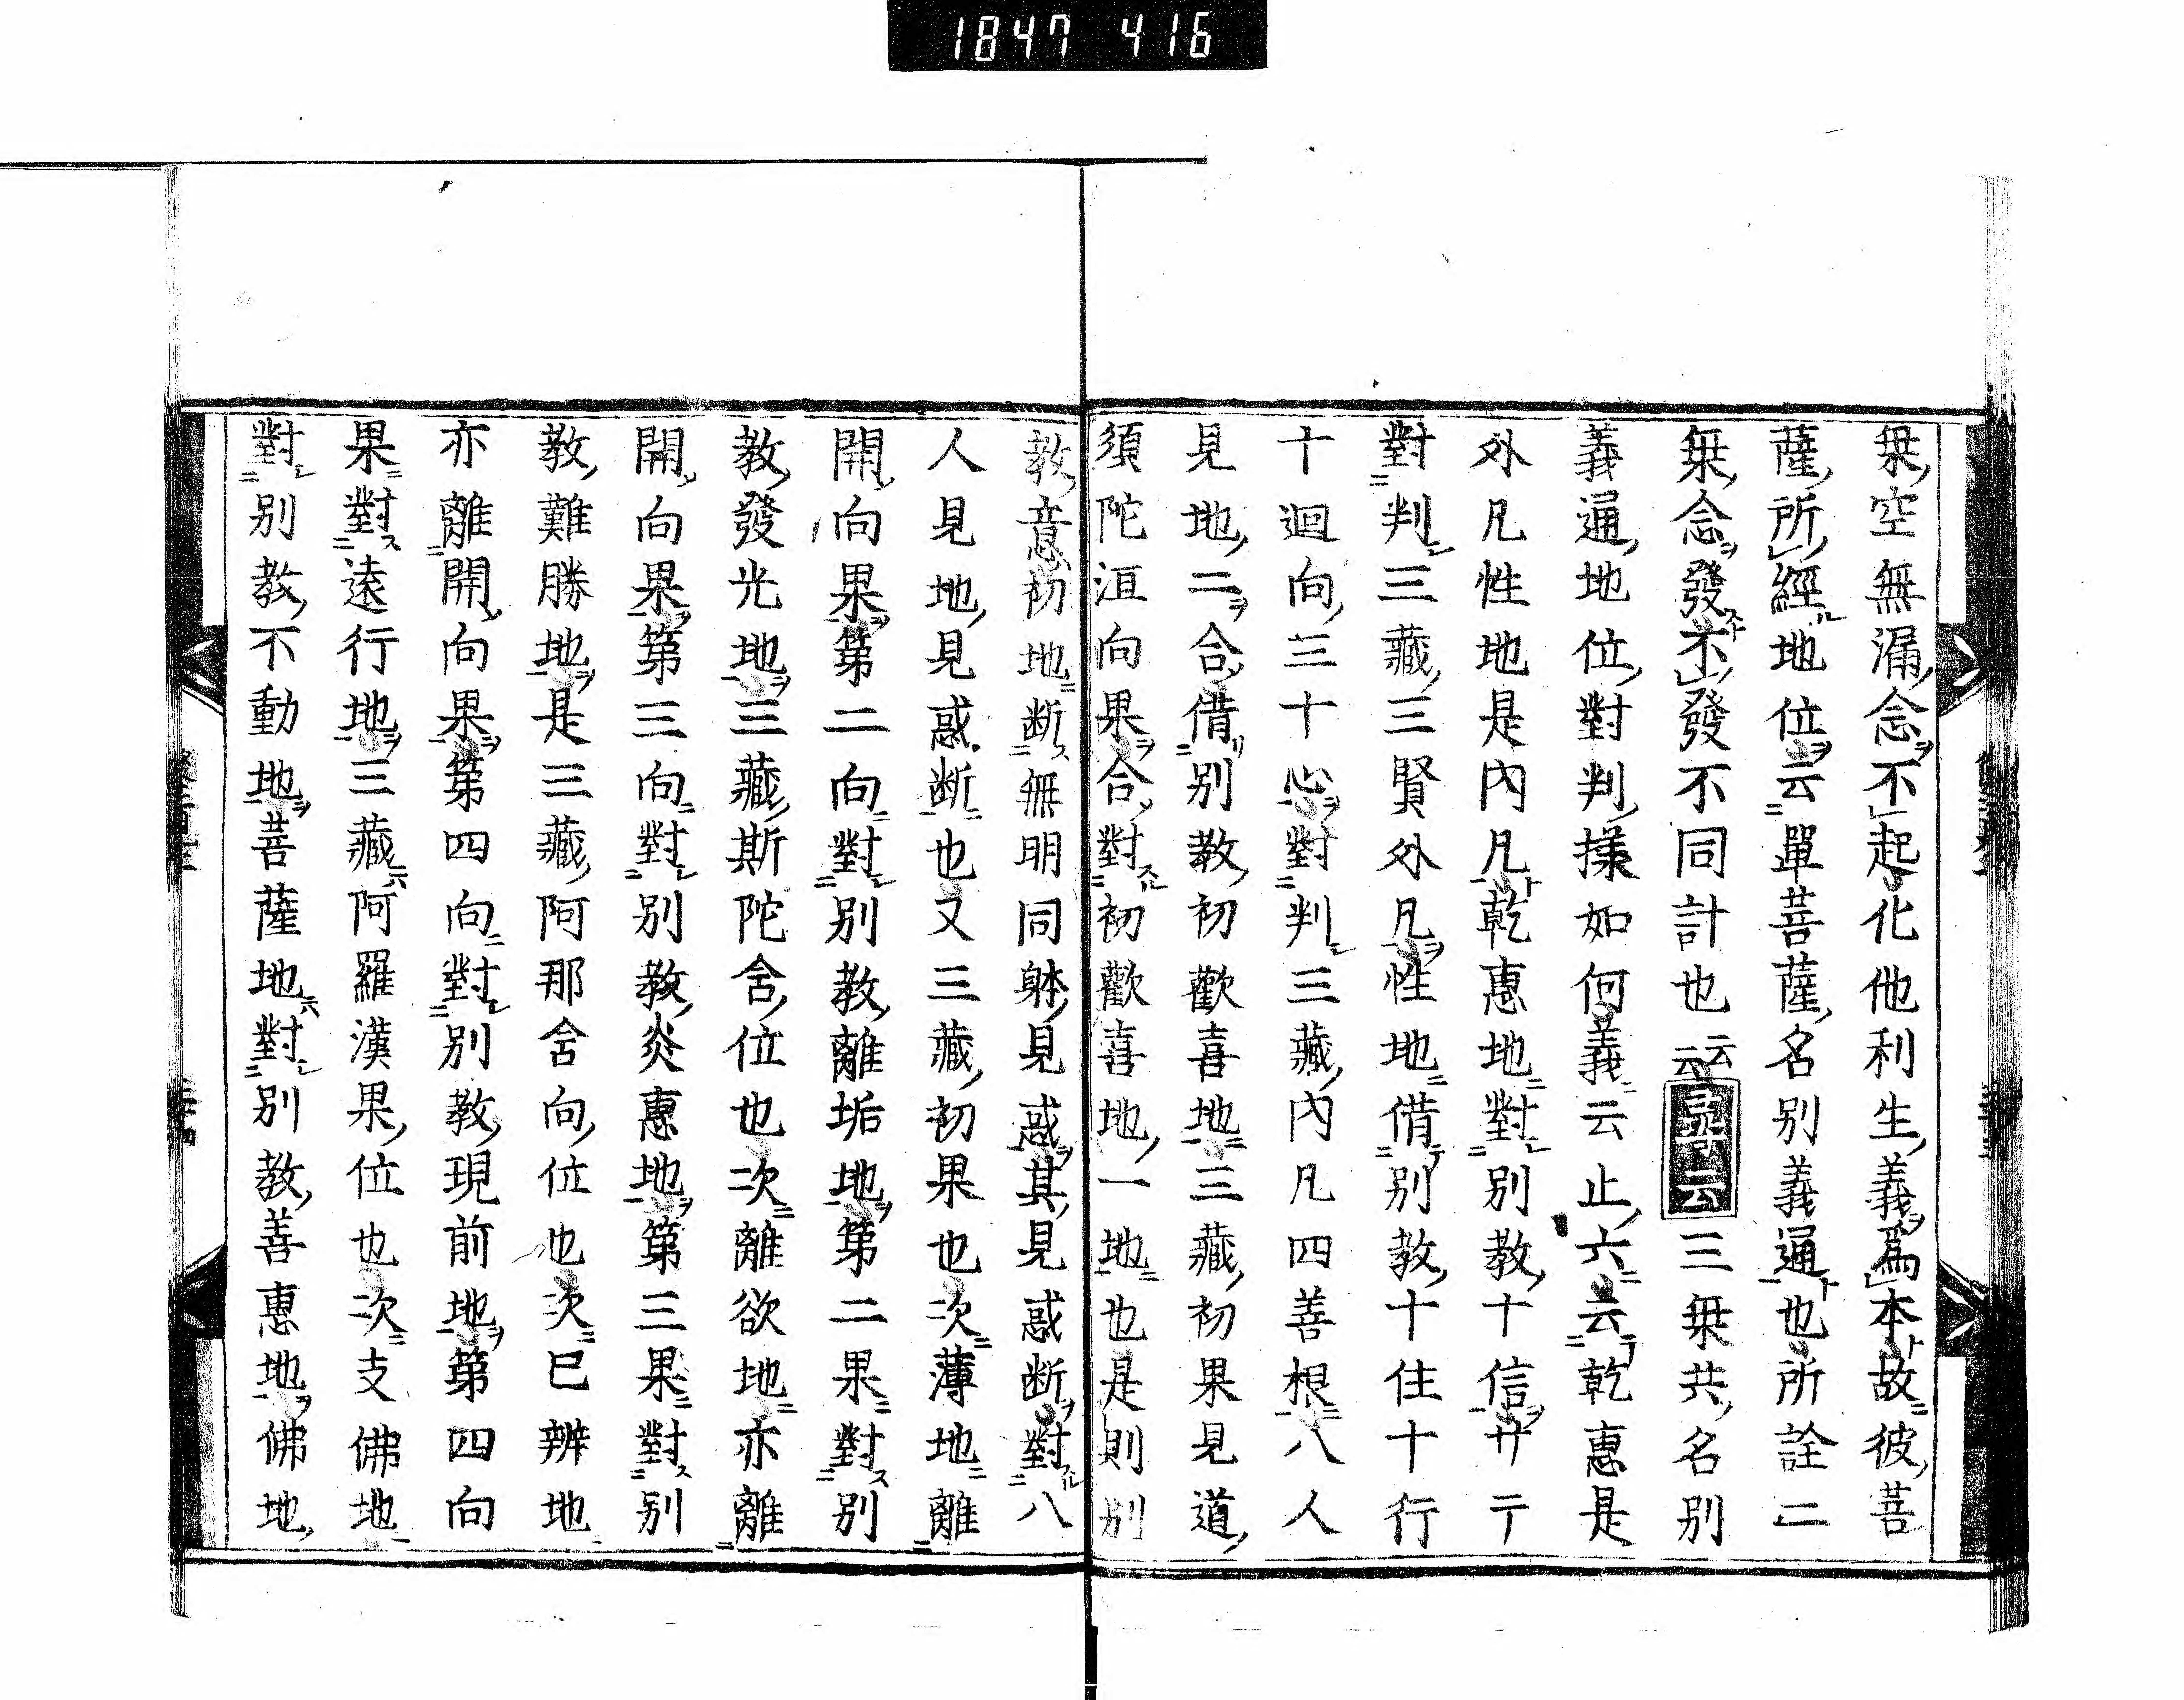 1847 416
乗空無漏念不起化他利生義為本故彼菩
薩所經地位云單菩薩名別義通也所詮二
乗念發不發不同計也云云三乗共名別
義通地位對判様如何義云止六云乾惠是
外凡性地是內凡乾惠地對別教十信廿亍
對判三藏三賢外凡性地借別教十住十行
十迴向三十心對判三藏內凡四善根八人
見地二合借別教初歡喜地三藏初果見道
須陀洹向果合對初歡喜地一地也是則別
教意初地断無明同躰見惑其見惑断對八
人見地見惑断也又三藏初果也次薄地離
開向果第二向對別教離垢地第二果對別
教發光地三藏斯陀含位也次離欲地亦離
開向果第三向對別教炎惠地第三果對別
教難勝地是三藏阿那含向位也次已辨地
亦離開向果第四向對別教現前地第四向
果對遠行地三藏阿羅漢果位也次支佛地
對別教不動地菩薩地對別教善惠地佛地